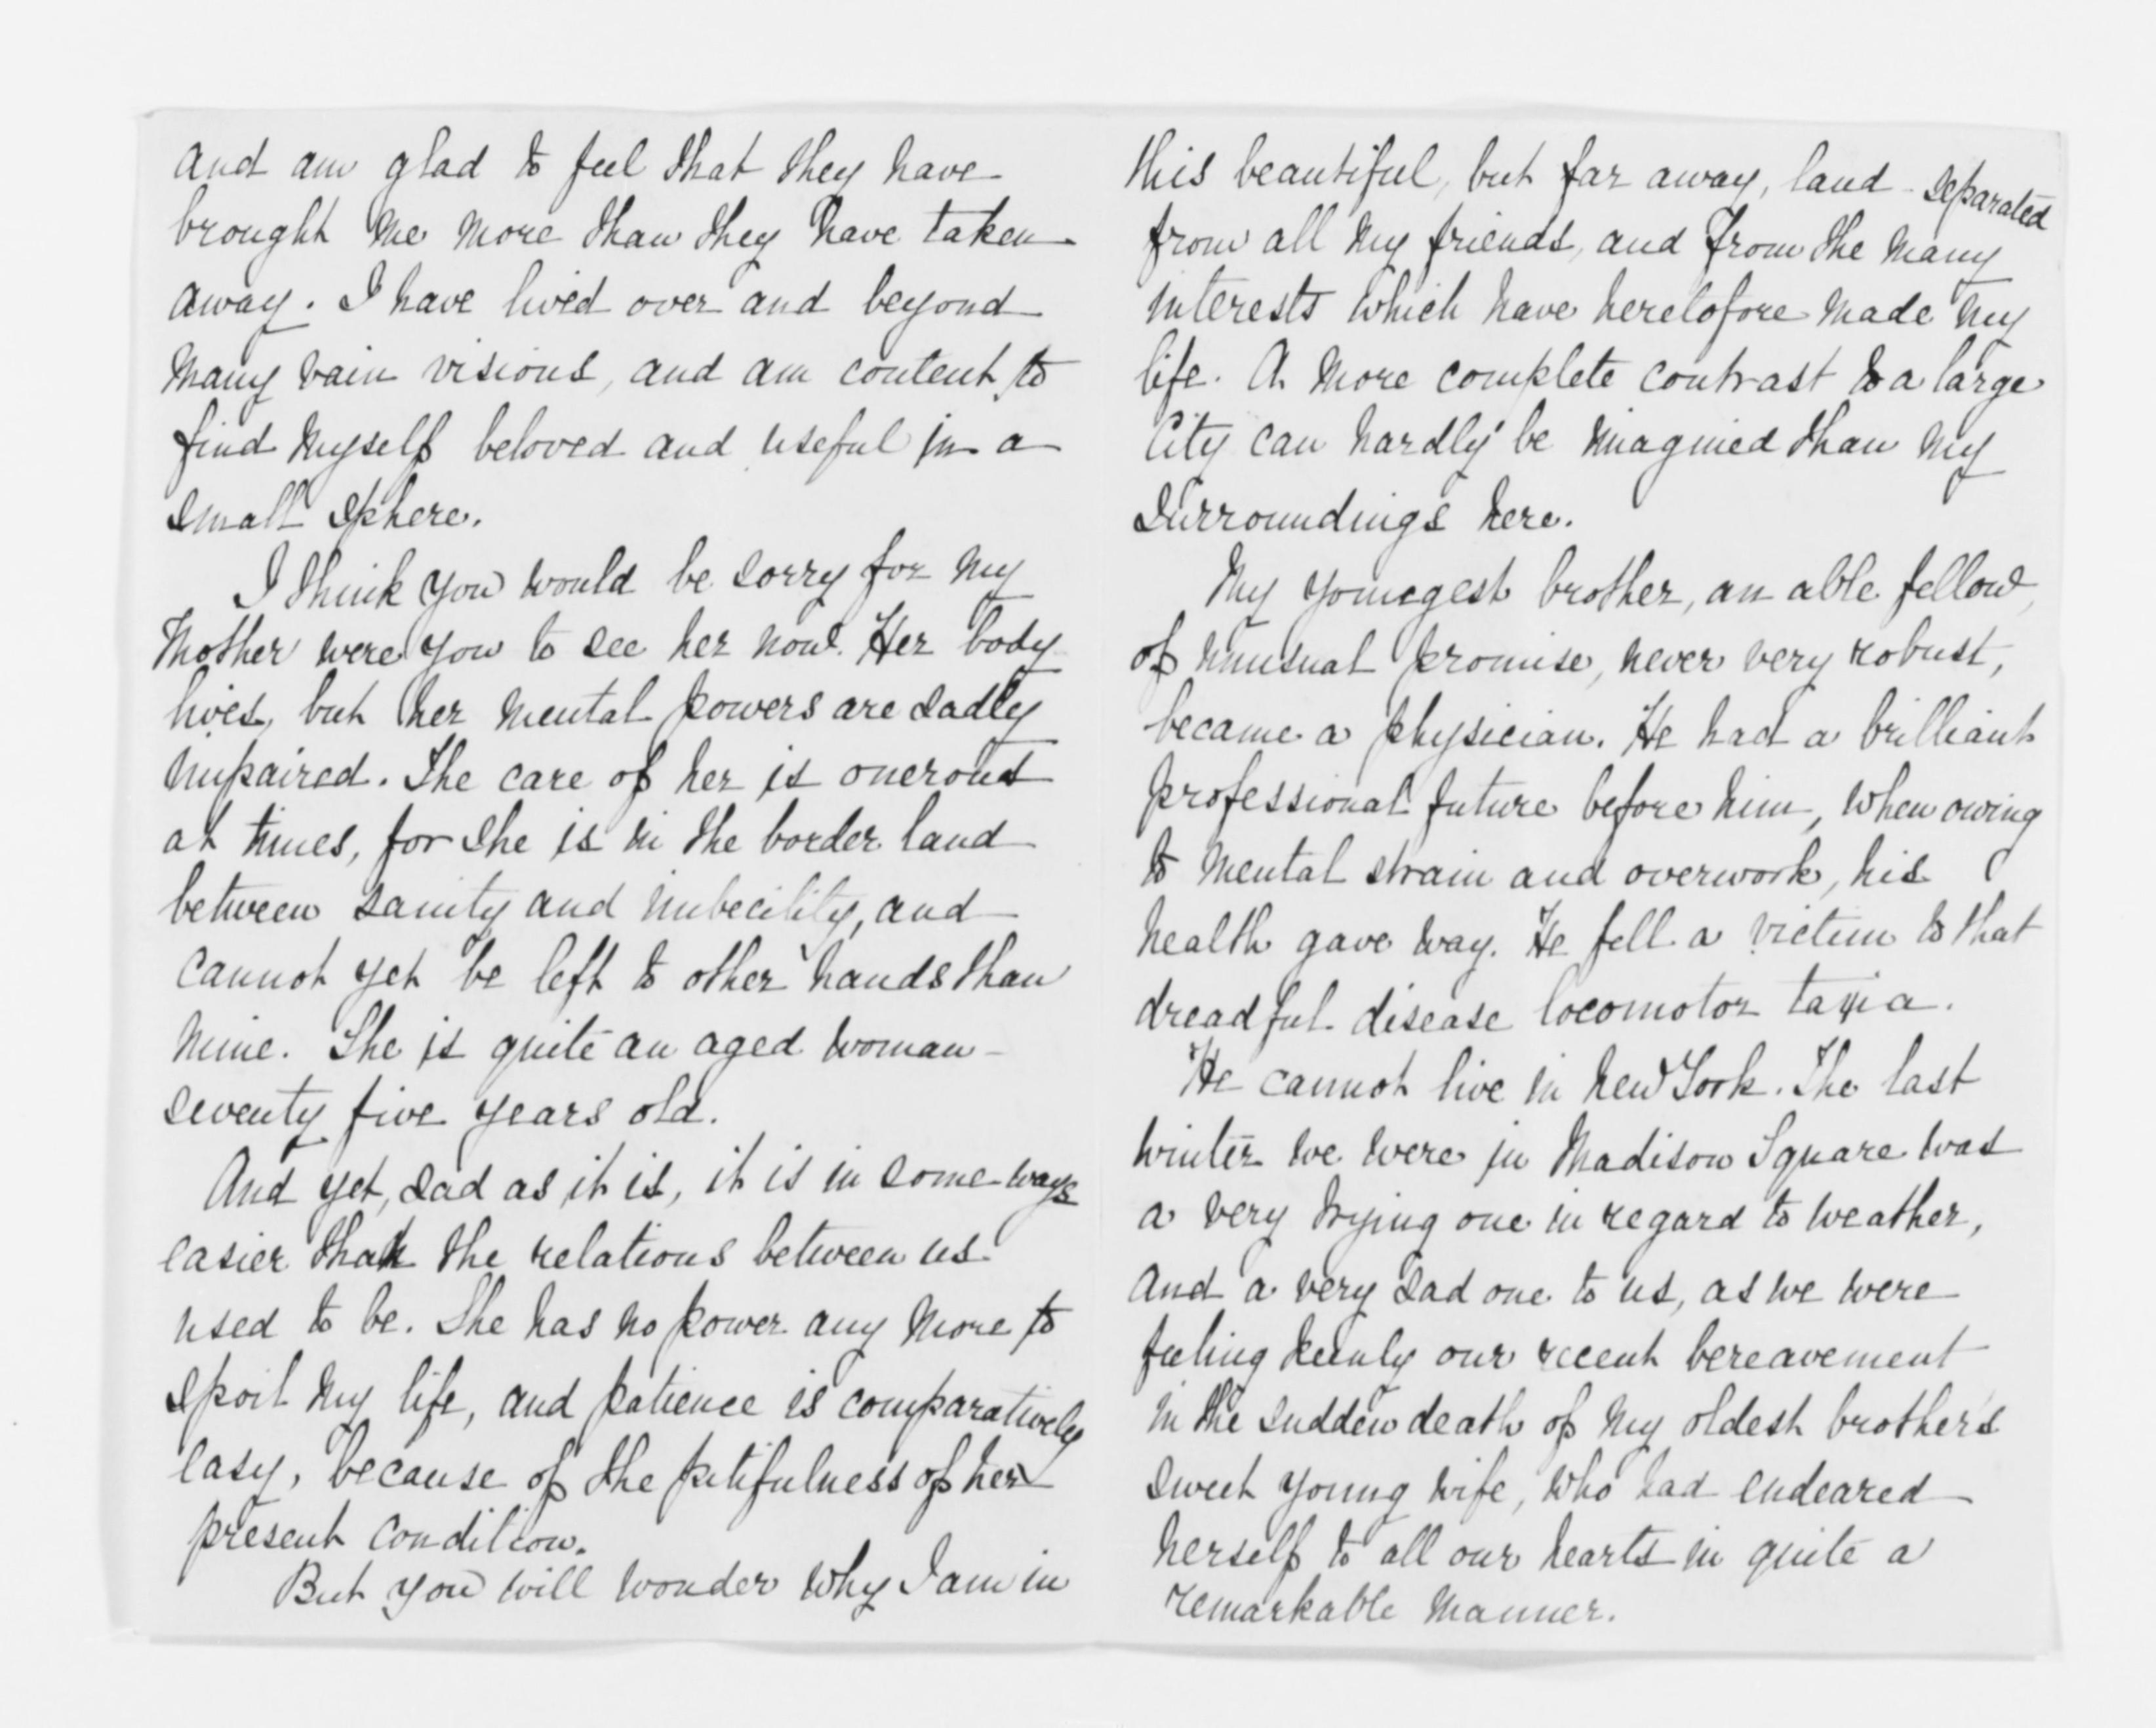 and am glad to feel that they have
brought me more than they have taken
away. I have lived over and beyond
many vain visions, and am content to
find myself beloved and useful in a
small sphere.
I think you would be sorry for my
Mother were you to see her now. Her body
lives, but her mental powers are sadly
impaired. The care of her is onerous
at times, for she is in the border land
between sanity and imbecility, and
cannot yet be left to other hands than
mine. She is quite an aged woman -
seventy five years old.
And yet, sad as it is, it is in some ways
easier than the relations between us
used to be. She has no power any more to
spoil my life, and patience is comparatively
easy, because of the pitifulness of her
present condition.
But you will wonder why I am in
this beautiful, but far away, land - separated
from all my friends, and from the many
interests which have heretofore made my
life. A more complete contrast to a large
City can hardly be imagined than my
surroundings here.
My youngest brother, an able fellow,
of unusual promise, never very robust,
became a physician. He had a brilliant
professional future before him, when owing
to mental strain and overwork, his
health gave way. He fell a victim to that
dreadful disease locomotor taxia.
He cannot live in New York. The last
winter we were in Madison Square was
a very trying one in regard to weather,
and a very sad one to us, as we were
feeling keenly our recent bereavement
in the sudden death of my oldest brother's
sweet young wife, who had endeared
herself to all our hearts in quite a
remarkable manner.